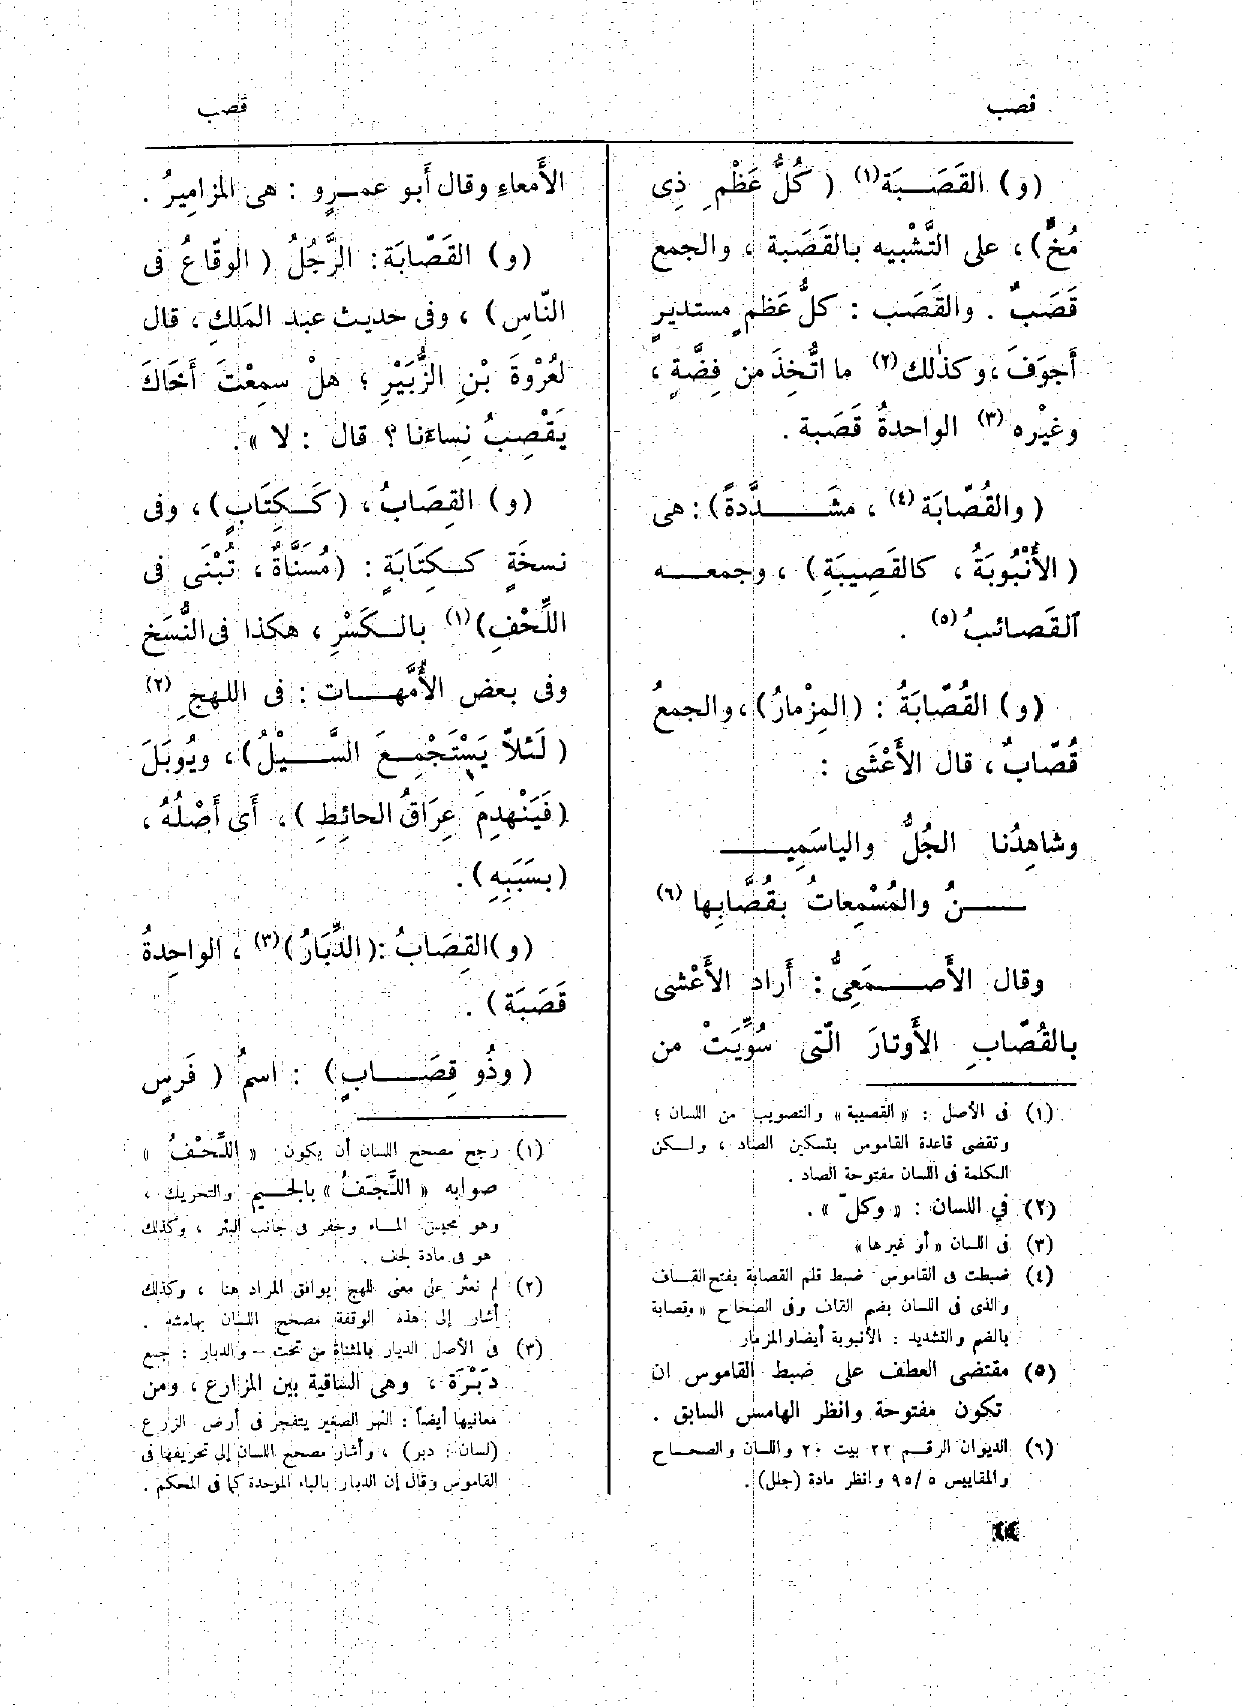 قصب
قصب
(و) القَصَبَة(١) (كُلُّ عَظْمٍ ذِى
مُخٍّ)، على التَّشْبيه بالقَصَبة، والجمع
قَصَبٌ. والقَصَب: كلُّ عَظمٍ مستديرٍ
أَجوَفَ، وكذٰلك(٢) ما اتُّخِذَ من فِضَّةٍ،
وغيْره(٣) الواحدةُ قَصَبة.
(والقُصّابَة(٤)، مشَدَّدةً): هى
(الأُنْبُوبَةُ، كالقَصِيبَةِ)، وجمعه
القَصائبُ(٥).
(و) القُصّابَةُ: (المِزْمارُ)، والجمعُ
قُصّابٌ، قال الأَعْشَى:
وشاهِدُنا الجُلُّ والياسَمِيـ
ـنُ والمُسْمِعاتُ بقُصَّابِها(٦)
وقال الأَصمَعِىُّ: أَراد الأَعْشى
بالقُصّابِ الأَوتارَ الّتى سُوِّيَتْ من
(١) فى الأصل: «القصيبة» والتصويب من اللسان؛
وتقضى قاعدة القاموس بتسكين الصاد، ولكن
الكلمة فى اللسان مفتوحة الصاد.
(٢) في اللسان: «وكلّ».
(٣) فى اللسان «أو غيرها»
(٤) ضبطت فى القاموس ضبط قلم القصابة بفتح القاف
والذى فى اللسان بضم القاف وفى الصحاح «وقصابة
بالضم والتشديد: الأنبوبة أيضا والمزمار
(٥) مقتضى العطف على ضبط القاموس ان
تكون مفتوحة وانظر الهامش السابق.
(٦) الديوان الرقم ٢٢ بيت ٢٠ واللسان والصحاح
والمقاييس ٩٥/٥ وانظر مادة (جلل).
الأَمعاءِ وقال أَبو عمرٍو: هى المزامِيرُ.
(و) القَصّابَة: الرَّجُلُ (الوقّاعُ فى
النّاسِ)، وفى حديث عبد المَلكِ، قال
لعُرْوةَ بْنِ الزُّبَيْرِ؛ هلْ سمِعْتَ أَخَاكَ
يَقْصِبُ نِساءَنا؟ قال: لا».
(و) القِصَابُ، (كَكِتَابٍ)، وفى
نسخَةٍ كَكِتَابَةٍ: (مُسَنَّاةٌ، تُبْنَى فى
اللِّحْفِ)(١) بالكَسْرِ، هكذا فى النُّسَخ
وفى بعض الأُمَّهات: فى اللهجِ(٢)
(لَئلاّ يَسْتَجْمِعَ السَّيْلُ)، ويُوبَلَ
(فَيَنْهدِمَ عِرَاقُ الحائِطِ)، أَى أَصْلُهُ،
(بسَبَبِهِ).
(و) القِصَابُ: (الدِّبَارُ)(٣)، الواحِدةُ
قَصَبَة).
(وذُو قِصَابٍ): اسمُ (فَرَسٍ
(١) رجح مصحح اللسان أن يكون: «اللَّحْفُ»
صوابه «اللَّجَفُ» بالجيم والتحريك،
وهو محبس الماء وحفر فى جانب البئر، وكذلك
هو فى مادة لجف.
(٢) لم نعثر على معنى للهج يوافق المراد هنا، وكذلك
أشار إلى هذه الوقفة مصحح اللسان بهامشه.
(٣) فى الأصل الديار بالمثناة من تحت - والدبار: جمع
دَبْرَة، وهى الساقية بين المزارع، ومن
معانيها أيضاً: النهر الصغير يتفجر فى أرض الزرع
(لسان: دبر)، وأشار مصحح اللسان إلى تحريفها فى
القاموس وقال إن الدبار بالباء الموحدة كما فى المحكم.